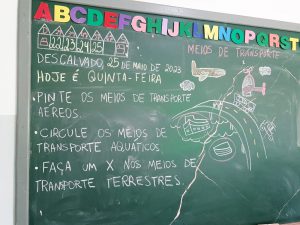 ABCDEFGHIJKLMNOPQRST
22 23 24 25
DESCALVADO, 25 DE MAIO DE 2023
MEIOS DE TRANSPORTE
HOJE É QUINTA-FEIRA
• PINTE OS MEIOS DE TRANSPORTE
AÉREOS.
• CIRCULE OS MEIOS DE
TRANSPORTE AQUÁTICOS.
• FAÇA UM X NOS MEIOS DE
TRANSPORTE TERRESTRES.